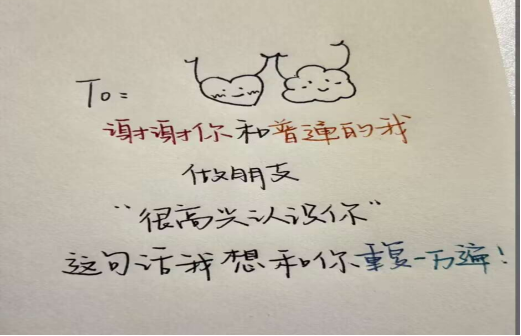 To:
谢谢你和普通的我
做朋友
“很高兴认识你”
这句话我想和你重复一万遍!